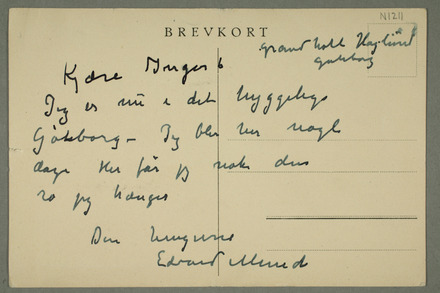 N1211
BREVKORT
Grand Hotel Haglund
Gøteborg
Kjære Inger
Jeg er nu i det hyggelige
Gøteborg – Jeg blir her nogle
dage Her får jeg nok den
ro jeg trænger
Din hengivne
Edvard Munch